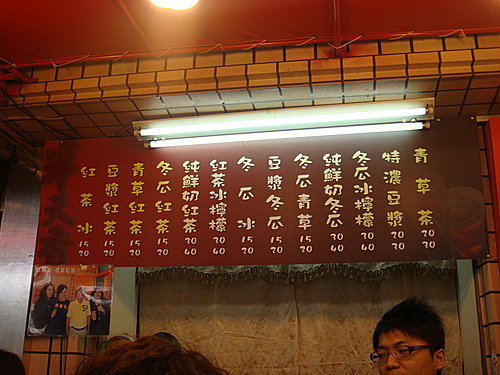 青草茶 20 30
特濃豆漿 20 30
冬瓜冰檸檬 30 40
純鮮奶冬瓜 30 40
冬瓜青草 15 20
豆漿冬瓜 15 20
冬瓜冰 15 20
紅茶冰檸檬 30 40
純鮮奶紅茶 30 40
冬瓜紅茶 15 20
青草紅茶 15 20
豆漿紅茶 15 20
紅茶冰 15 20